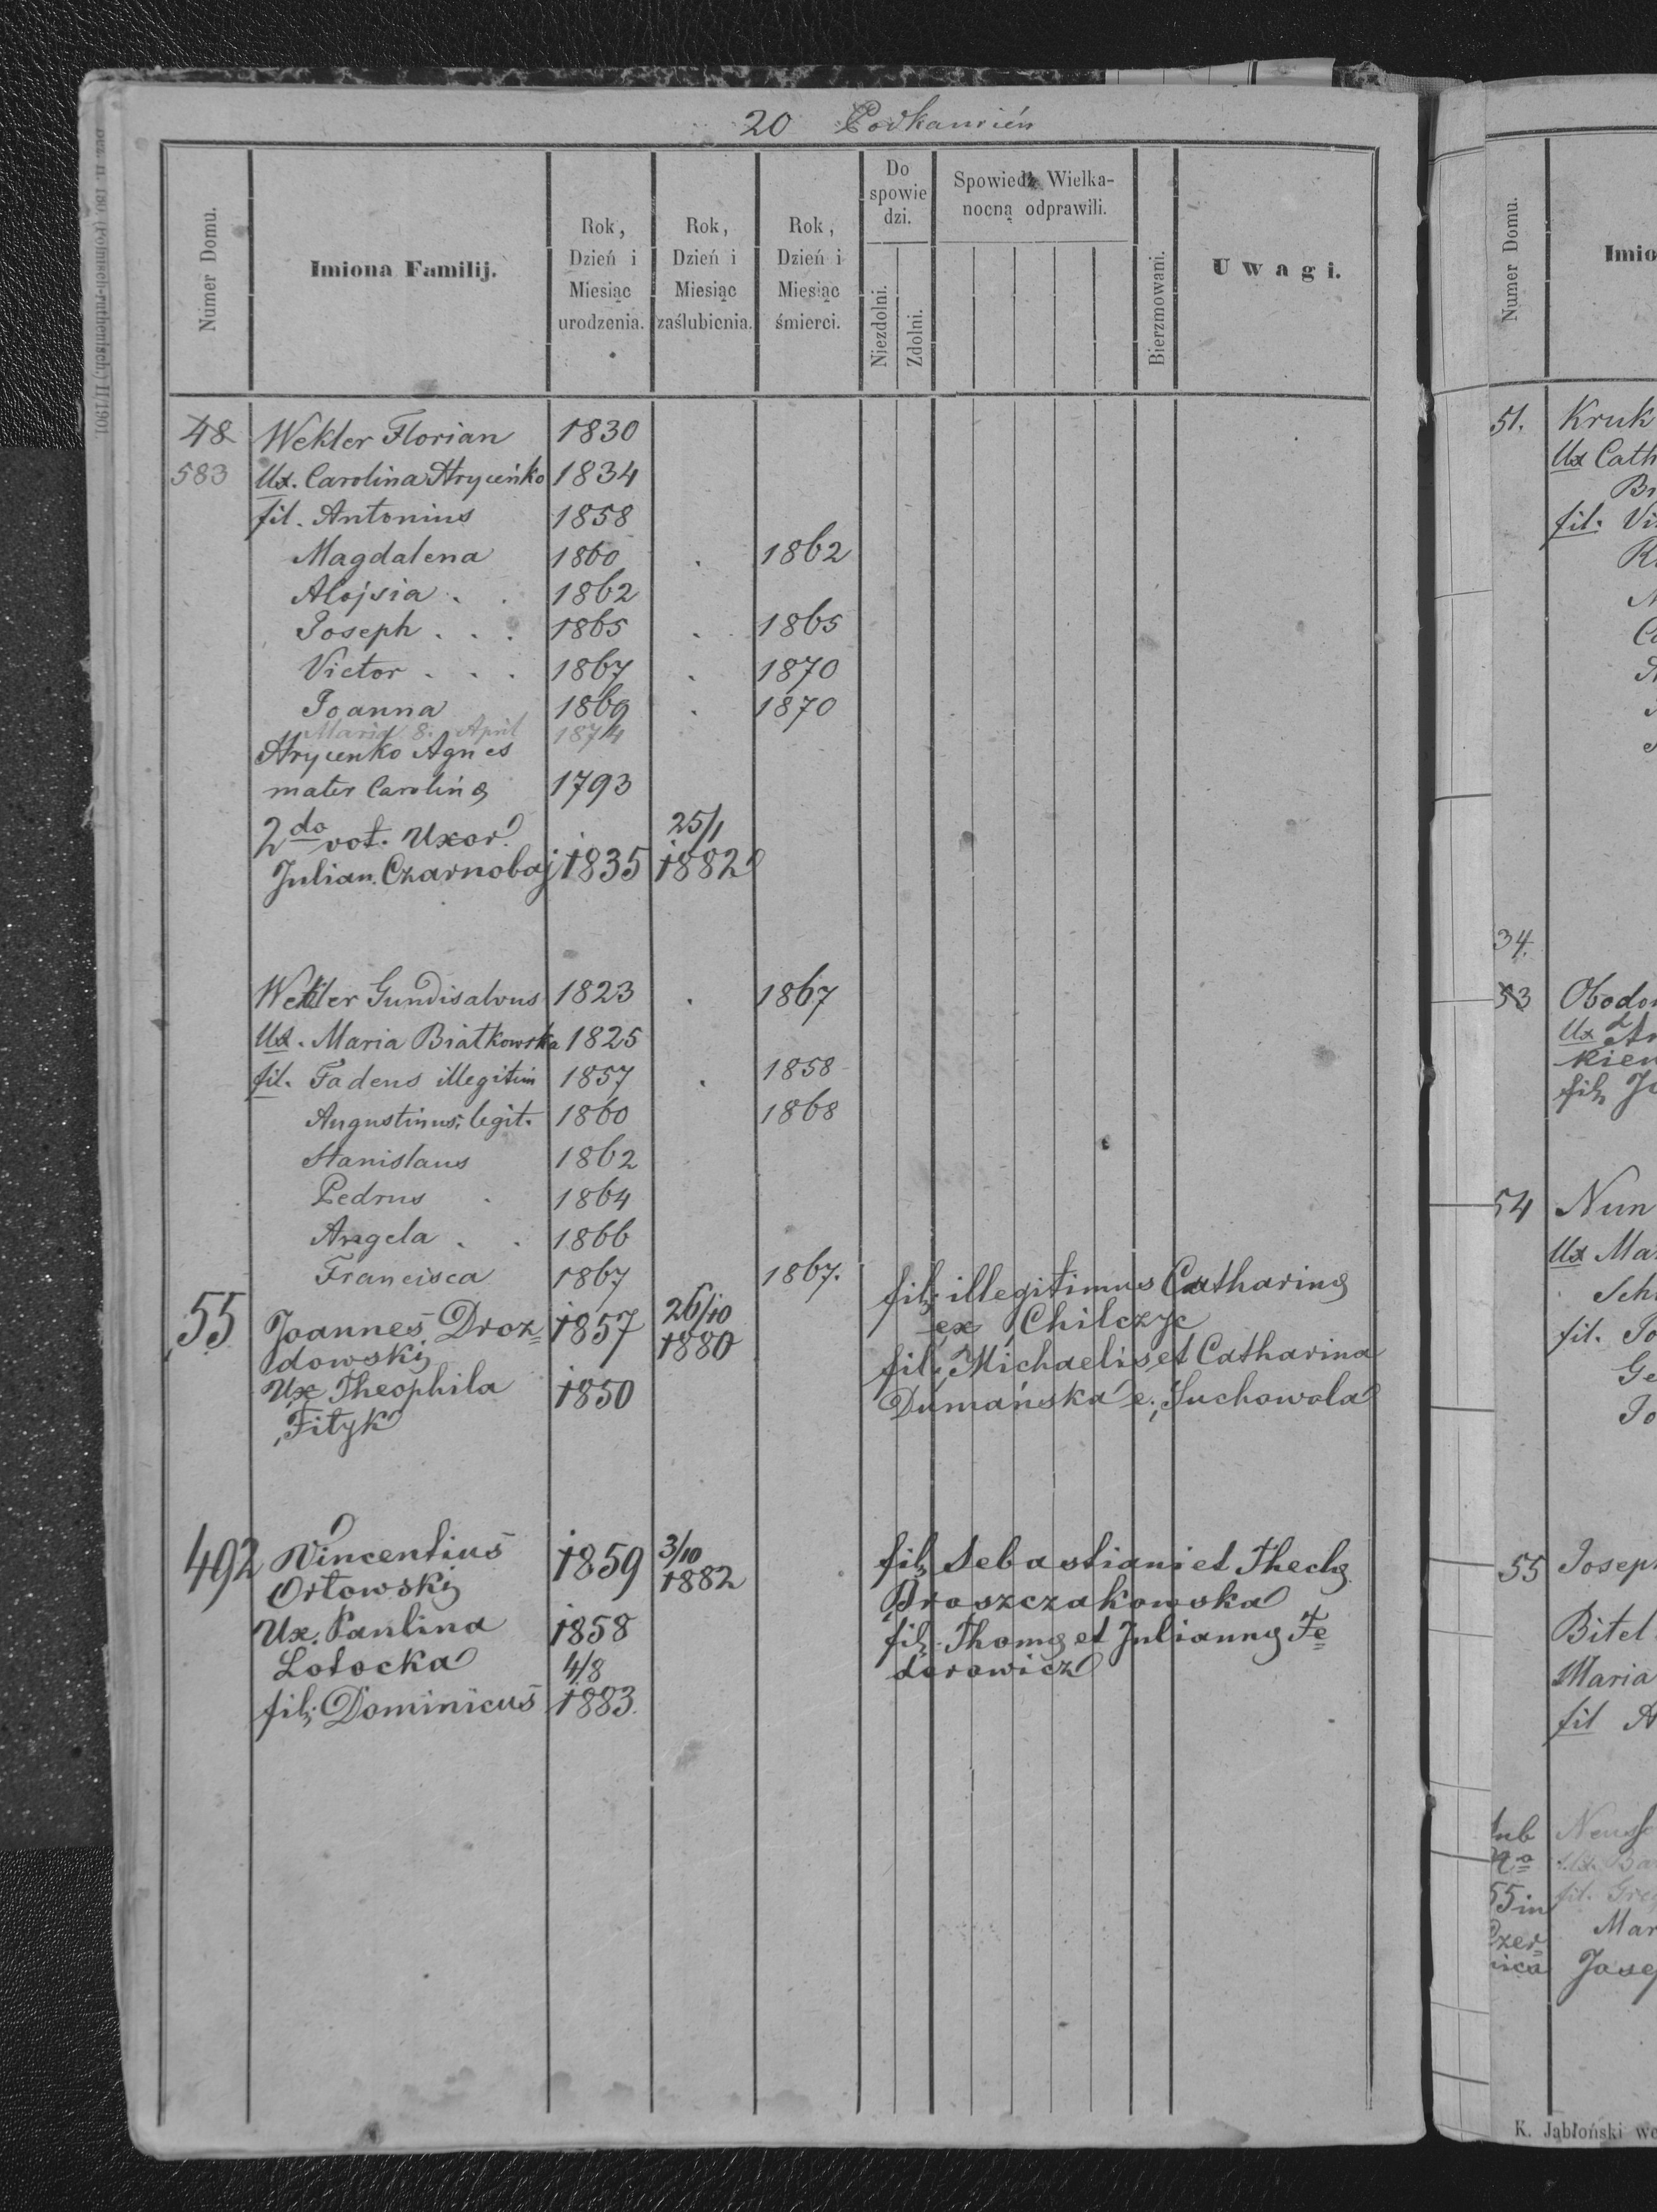 20 Podkamień
Numer Domu.
Imiona Familij.
Rok, Dzień i Miesiąc urodzenia.
Rok, Dzień i Miesiąc zaślubienia.
Rok, Dzień i Miesiąc śmierci.
Do spowiedzi.
Niezdolni.
Zdolni.
Spowiedź Wielka-
nocną odprawili.
Bierzmowani.
Uwagi.
48 Wekler Florian 1830
583 Ux. Carolina Hryceńko 1834
fil. Antonius 1858
Magdalena 1860 . 1862
Alojsia . . 1862
Joseph . . . 1865 . 1865
Victor . . . 1867 . 1870
Joanna 1869 . 1870
Maria 8. April 1874
Hrycenko Agnes
mater Carolinę 1793
2do vot. Uxor. 25/1
Julian. Czarnobaj 1835 1882
Wekler Gundisalvus 1823 . 1867
Ux. Maria Białkowska 1825
fil. Tadeus illegitim 1857 . 1858
Augustinus, legit. 1860 1868
Stanislaus 1862
Pedrus . 1864
Angela . . 1866
Francisca 1867 1867.
55 Joannes Droz= 1857 26/10 1880 fil. illegitimus Catharinę
dowski ex Chilczyc
Ux Theophila 1850 fil. Michaelis et Catharina
Fityk Dumańska e. Suchowola
492 Vincentius 1859 3/10 1882 fil. Sebastiani et Theclę
Orłowski Proszczakowska
Ux. Paulina 1858 fil. Thomę et Juliannę Fe=
Łotocka 4/8 dorowicz
fil. Dominicus 1883.
Numer Domu.
Imio
51. Kruk
Ux Cath
Br
fil. Vi
34.
53 Obodo
Ux An
kien
fil. Jo
54 Nun
Ux Ma
Sch
fil. Jo
Ge
Jo
55 Josep
Bitel
Maria
fil A
No
55 in
Czer=
nica
Mar
Josep
K. Jabłoński we